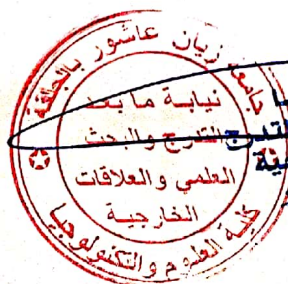 جامعة زيان عاشور بالجلفة
نيابة ما بعد
التدرج والبحث
العلمي والعلاقات
الخارجية
كلية العلوم والتكنولوجيا